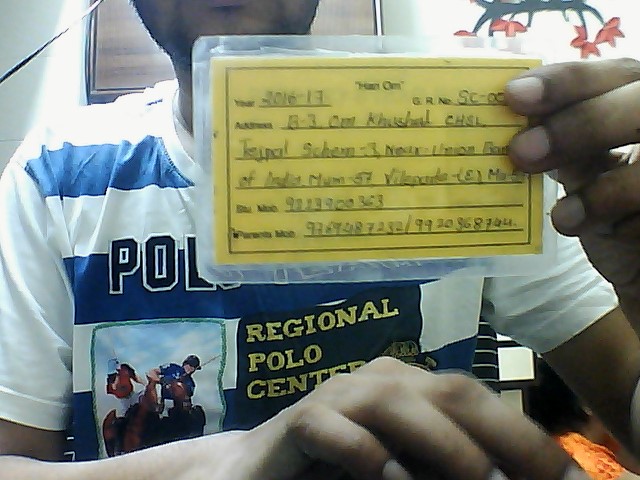 "Hari Om"
Year 2016-17 G.R. No. SC-00
Address B-3, Om Khushal CHSL,
Tejpal Scheme-3, Near Union Ban
of India, Mum-57 Vileparle-(E) Mu
Stu. Mob. 9223900363
Parents Mob. 9769487232/9920368744.
POL
REGIONAL
POLO
CENTE